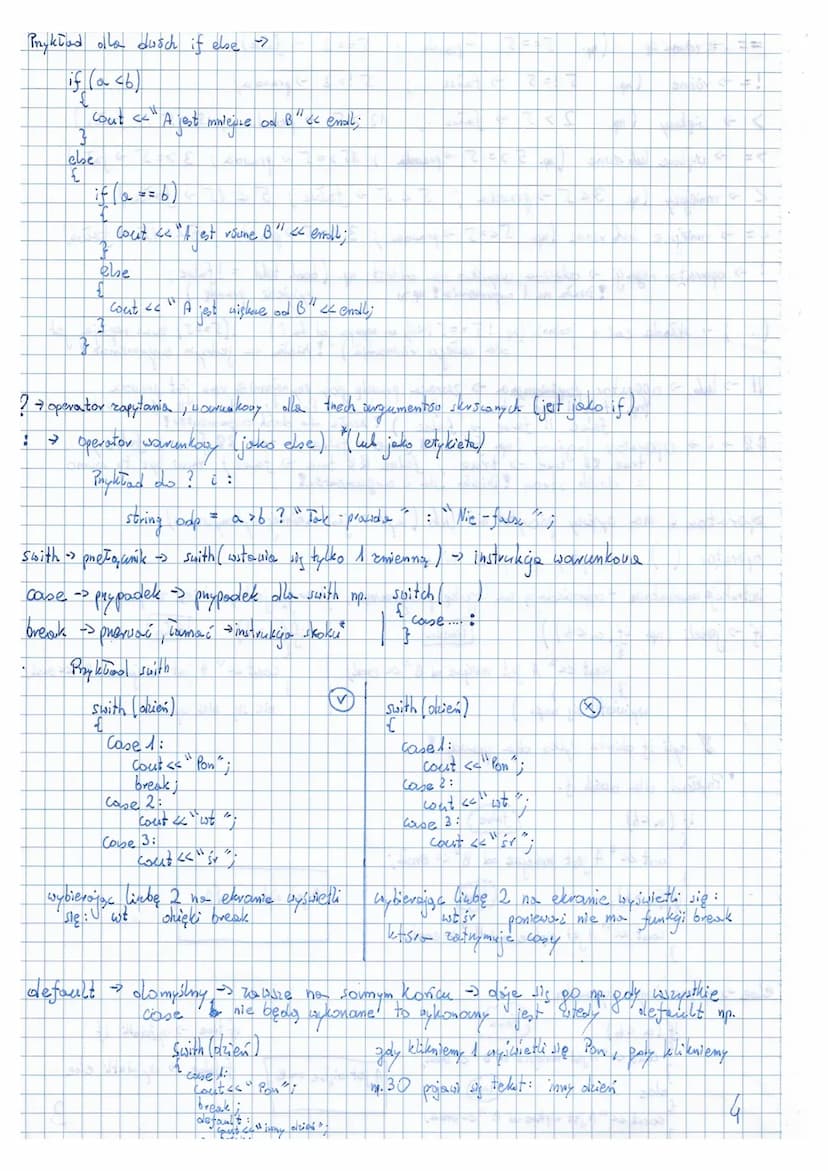 Przykład dla dwóch if else →
if (a <b)
{
cout <<"A jest mniejsze od B"<< endl;
}
else
{
if (a == b)
{
cout <<"A jest równe B" << endl;
}
else
{
cout << " A jest większe od B"<< endl;
}
}
? → operator zapytania, warunkowy dla trzech argumentów skróconych (jest jako if)
: → operator warunkowy (jako else) *(lub jako etykieta)
Przykład do ? i :
string odp = a >b ? "Tak - prawda " : "Nie - false ";
swith → przełącznik → swith( wstawia się tylko 1 zmienną ) → instrukcja warunkowa
case → przypadek → przypadek dla swith np. switch( )
{ case .... :
break → przerwać, łamać → instrukcja skoku* }
Przykład swith
swith (dzień) V
{
Case 1:
cout << "Pon";
break;
case 2:
cout << "wt ";
case 3:
cout << "śr ";
wybierając liczbę 2 na ekranie wyświetli
się: wt dzięki break
swith (dzień) X
{
case 1:
cout <<"Pon";
case 2:
cout << "wt ";
case 3:
cout << "śr";
wybierając liczbę 2 na ekranie wyświetli się:
wt śr ponieważ nie ma funkcji break
która zatrzymuje casy
default → domyślny → zawsze na samym końcu → daje się go np. gdy wszystkie
case nie będą wykonane to wykonany jest wtedy default np.
Swith (dzień)
{ case 1:
cout << " Pon";
break;
default:
cout <<"inny dzień";
gdy klikniemy 1 wyświetli się Pon, gdy klikniemy
np. 30 pojawi się tekst: inny dzień
4